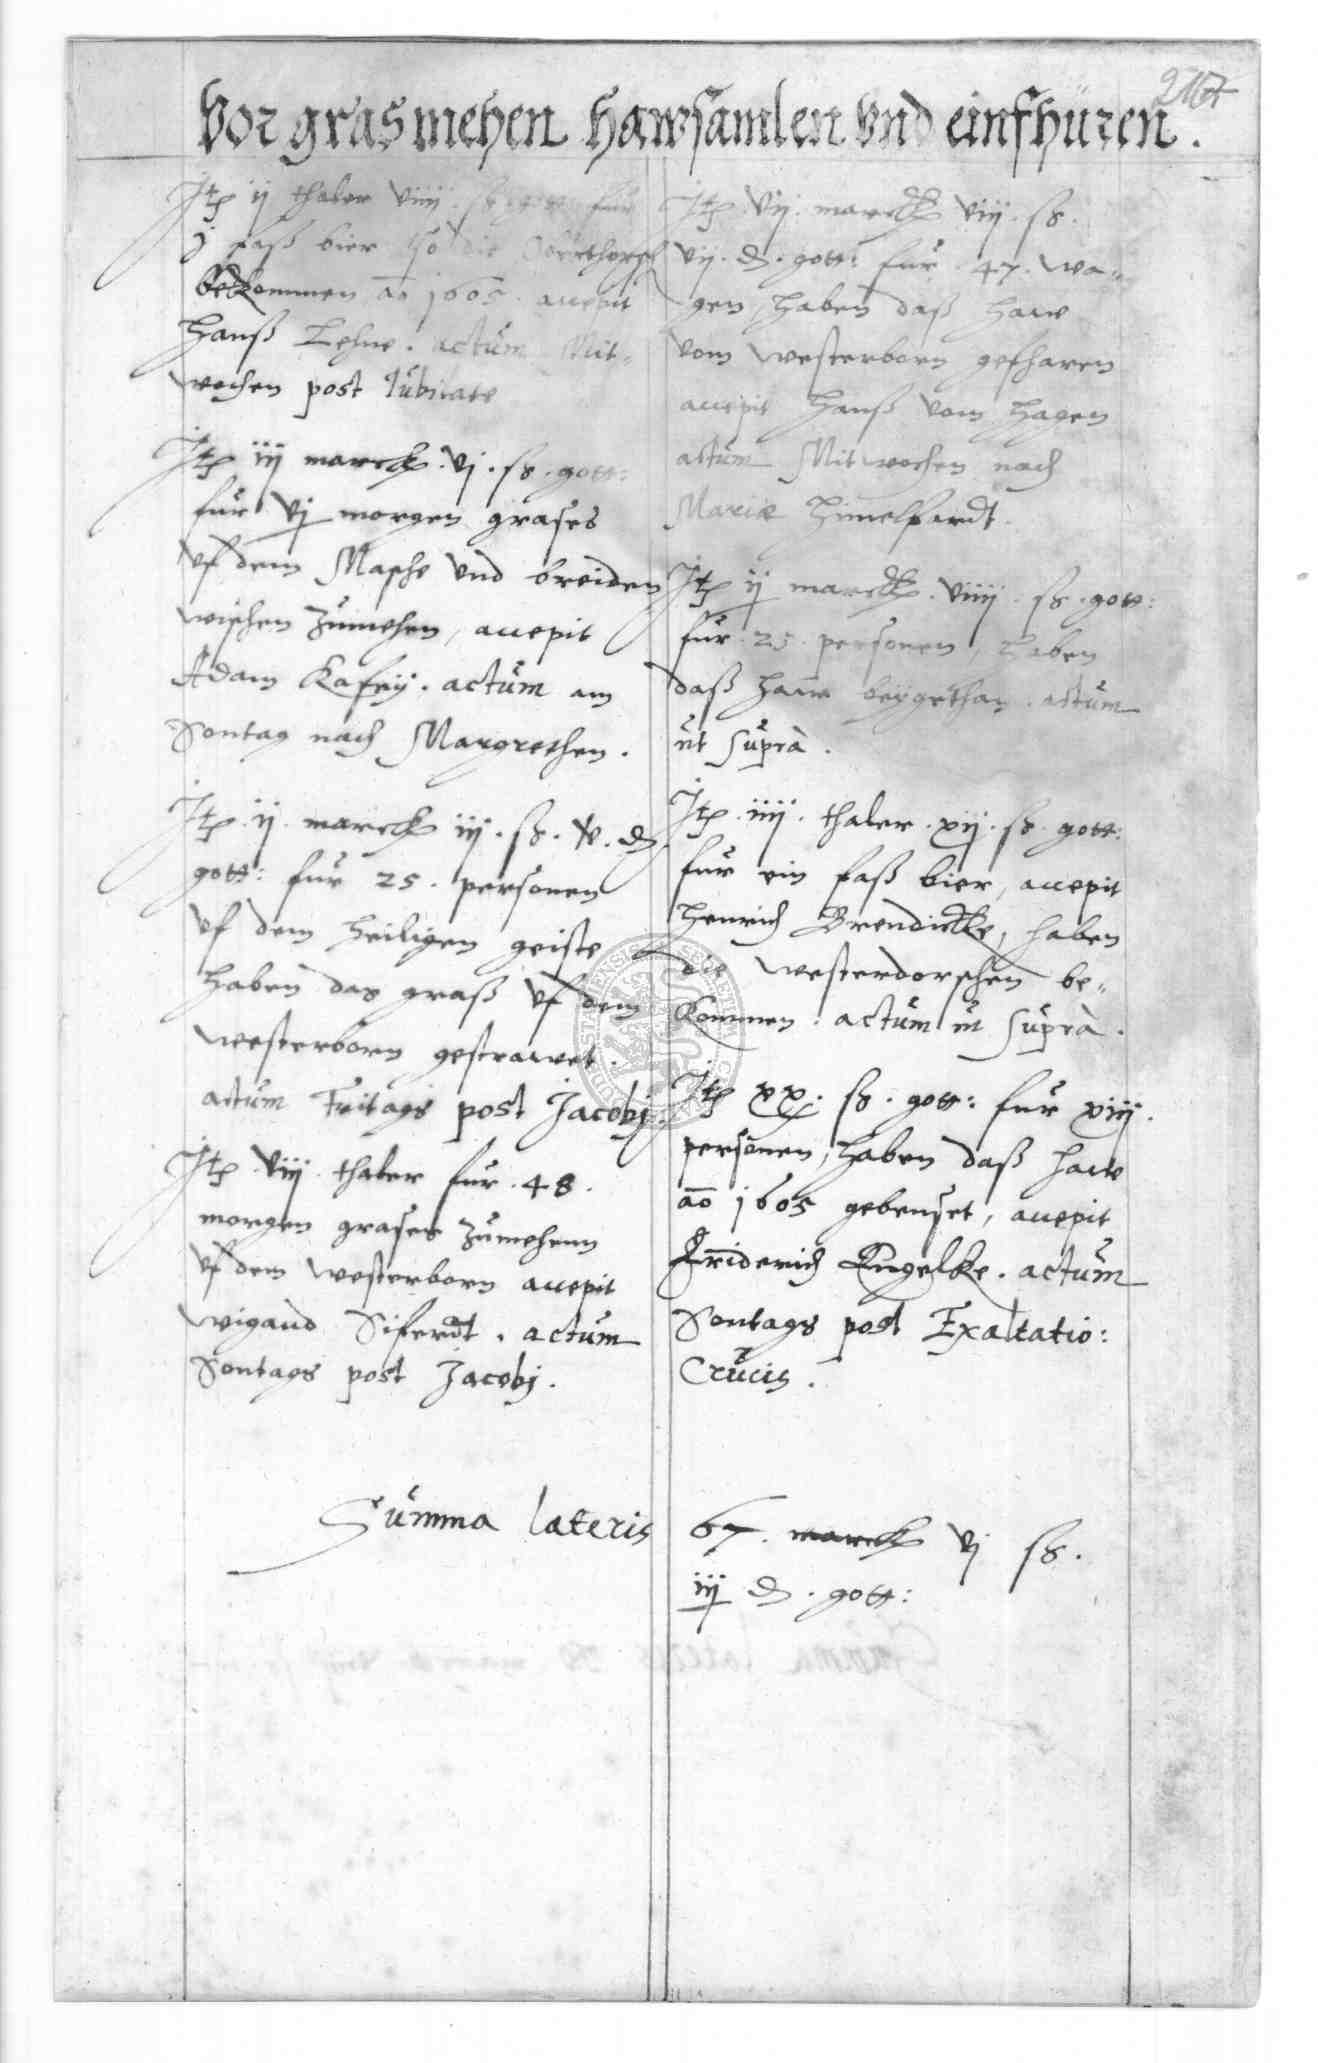 Vor gras mehen hawsamlen vnd einfhüren.
Jtem ij thaler viiij ß gott: für
j faß bier so die
bekommen ao 1605. accepit
Hanß Lehne. actum Mit-
wochen post Jubilate
Jtem iij marck. vj. ß. gott:
für vj morgen grases
vf dem Masche vnd breiden
wischen zumehen, accepit
Adam. actum am
Sontag nach Margrethen.
Jtem. ij. marck iij. ß. v. d
gott: für 25. personen
vf dem heiligen geiste
haben das graß vf dem
westerborn gestrawet.
actum Freitags post Jacobj.
Jtem. viij. thaler für. 48.
morgen grases zumehenn
vf dem westerborn accepit
wigand Siferdt. actum
Sontags post Jacobj.
Jtem. vij. marck viij. ß.
vij. d. gott: für 47. wa-
gen, haben daß haw
vom westerborn gefharen
accepit Hanß vom Hagen
actum Mitwochen nach
Mariæ Himelfardt.
Jtem ij marck. viiij. ß. gott:
für. 25. personen, haben
daß haw beygethan. actum
ut suprà.
Jtem. iiij. thaler. xij. ß. gott:
für ein faß bier, accepit
Henrich Brendicke, haben
die westerdorschen be-
kommen. actum ut suprà.
Jtem xx. ß. gott: für xiij.
personen, haben daß haw
ao 1605 gebenset, accepit
Friderich Engelke. actum
Sontags post Exaltatio:
Crucis.
Summa lateris 67. marck vj ß.
iij d. gott: